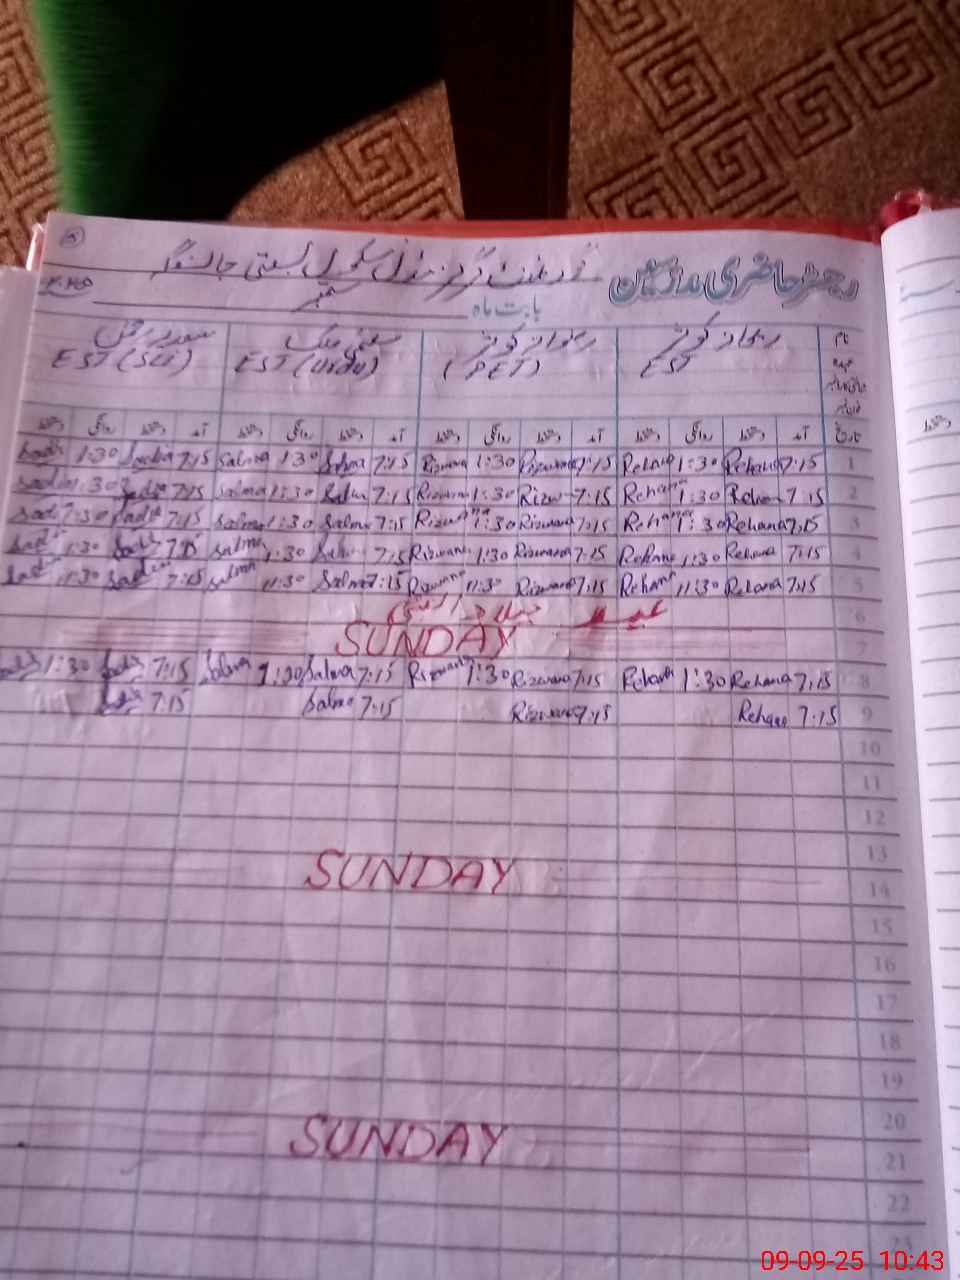 رجسٹر حاضری ملازمین گورنمنٹ گرلز مڈل سکول بستی
بابت ماہ ستمبر
نام
عہدہ
ریحانہ کوثر رضوانہ کوثر سعدیہ
EST (PET) EST (Urdu) EST (SCI)
تاریخ آمد دستخط روانگی دستخط آمد دستخط روانگی دستخط آمد دستخط روانگی دستخط آمد دستخط روانگی دستخط
1:30 Sadia 7:15 Salma 1:30 Salma 7:15 Rizwana 1:30 Rizwana 7:15 Rehana 1:30 Rehana 7:15 1
1:30 Sadia 7:15 Salma 1:30 Salma 7:15 Rizwana 1:30 Rizw 7:15 Rehana 1:30 Rehana 7:15 2
Sadia 7:15 Salma 1:30 Salma 7:15 Rizwana 1:30 Rizwana 7:15 Rehana 1:30 Rehana 7:15 3
1:30 7:15 Salma 1:30 Salma 7:15 Rizwana 1:30 Rizwana 7:15 Rehana 1:30 Rehana 7:15 4
11:30 7:15 Salma 11:30 Salma 7:15 Rizwana 11:30 Rizwana 7:15 Rehana 11:30 Rehana 7:15 5
عید میلاد النبی 6
SUNDAY 7
1:30 7:15 Salma 1:30 Salma 7:15 Rizwana 1:30 Rizwana 7:15 Rehana 1:30 Rehana 7:15 8
7:15 Salma 7:15 Rizwana 7:15 Rehana 7:15 9
10
11
12
13
SUNDAY 14
15
16
17
18
19
20
SUNDAY 21
22
23
09-09-25 10:43